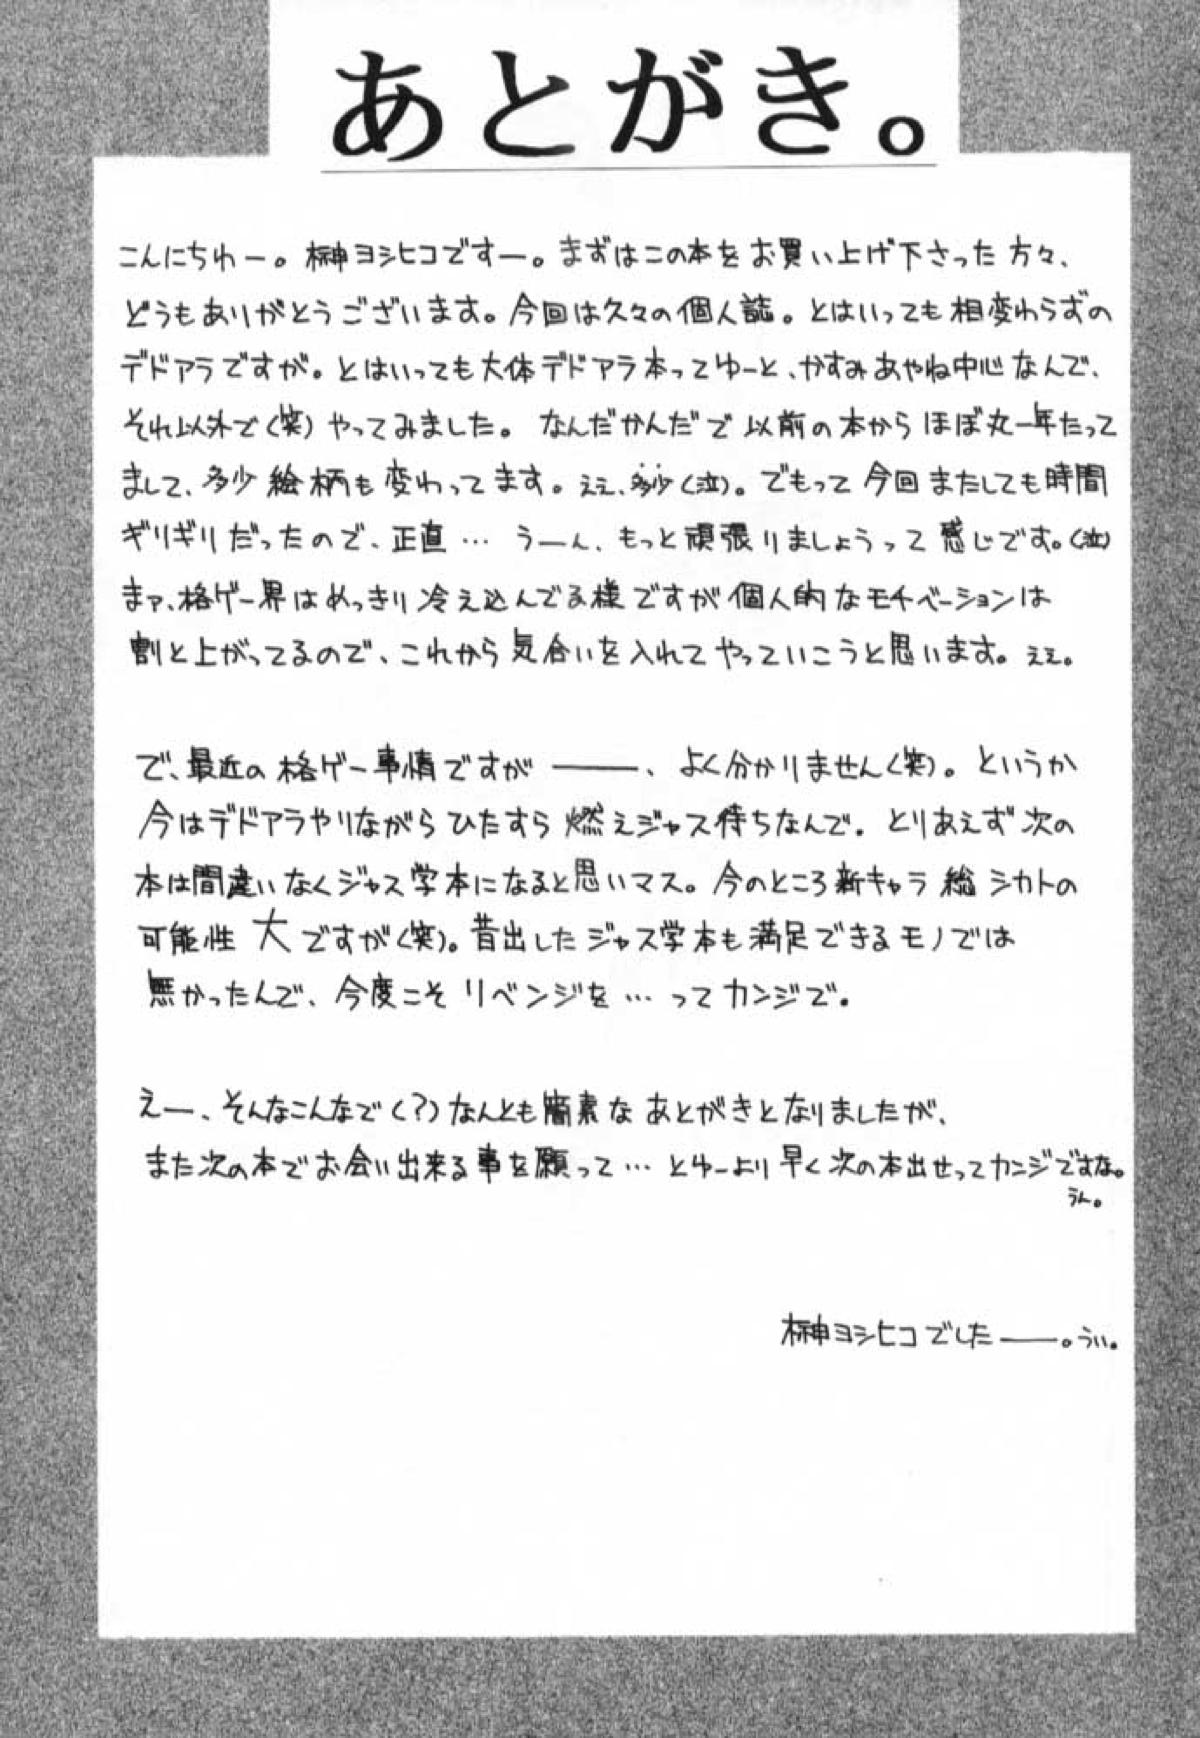 あとがき。
こんにちわー。榊ヨシヒコですー。まずはこの本をお買い上げ下さった方々、
どうもありがとうございます。今回は久々の個人誌。とはいっても相変わらずの
デドアラですが。とはいっても大体デドアラ本ってゆーと、かすみあやね中心なんで、
それ以外で(笑)やってみました。なんだかんだで以前の本からほぼ丸一年たって
まして、多少絵柄も変わってます。ええ、多少(泣)。でもって今回またしても時間
ギリギリだったので、正直…うーん、もっと頑張りましょうって感じです。(泣)
まァ、格ゲー界はめっきり冷え込んでる様ですが個人的なモチベーションは
割と上がってるので、これから気合いを入れてやっていこうと思います。ええ。
で、最近の格ゲー事情ですが―――、よく分かりません(笑)。というか
今はデドアラやりながらひたすら燃えジャス待ちなんで。とりあえず次の
本は間違いなくジャス学本になると思いマス。今のところ新キャラ総シカトの
可能性大ですが(笑)。昔出したジャス学本も満足できるモノでは
無かったんで、今度こそリベンジを…ってカンジで。
えー、そんなこんなで(?)なんとも簡素なあとがきとなりましたが、
また次の本でお会い出来る事を願って…とゆーより早く次の本出せってカンジですな。
うん。
榊ヨシヒコでした―――。うい。